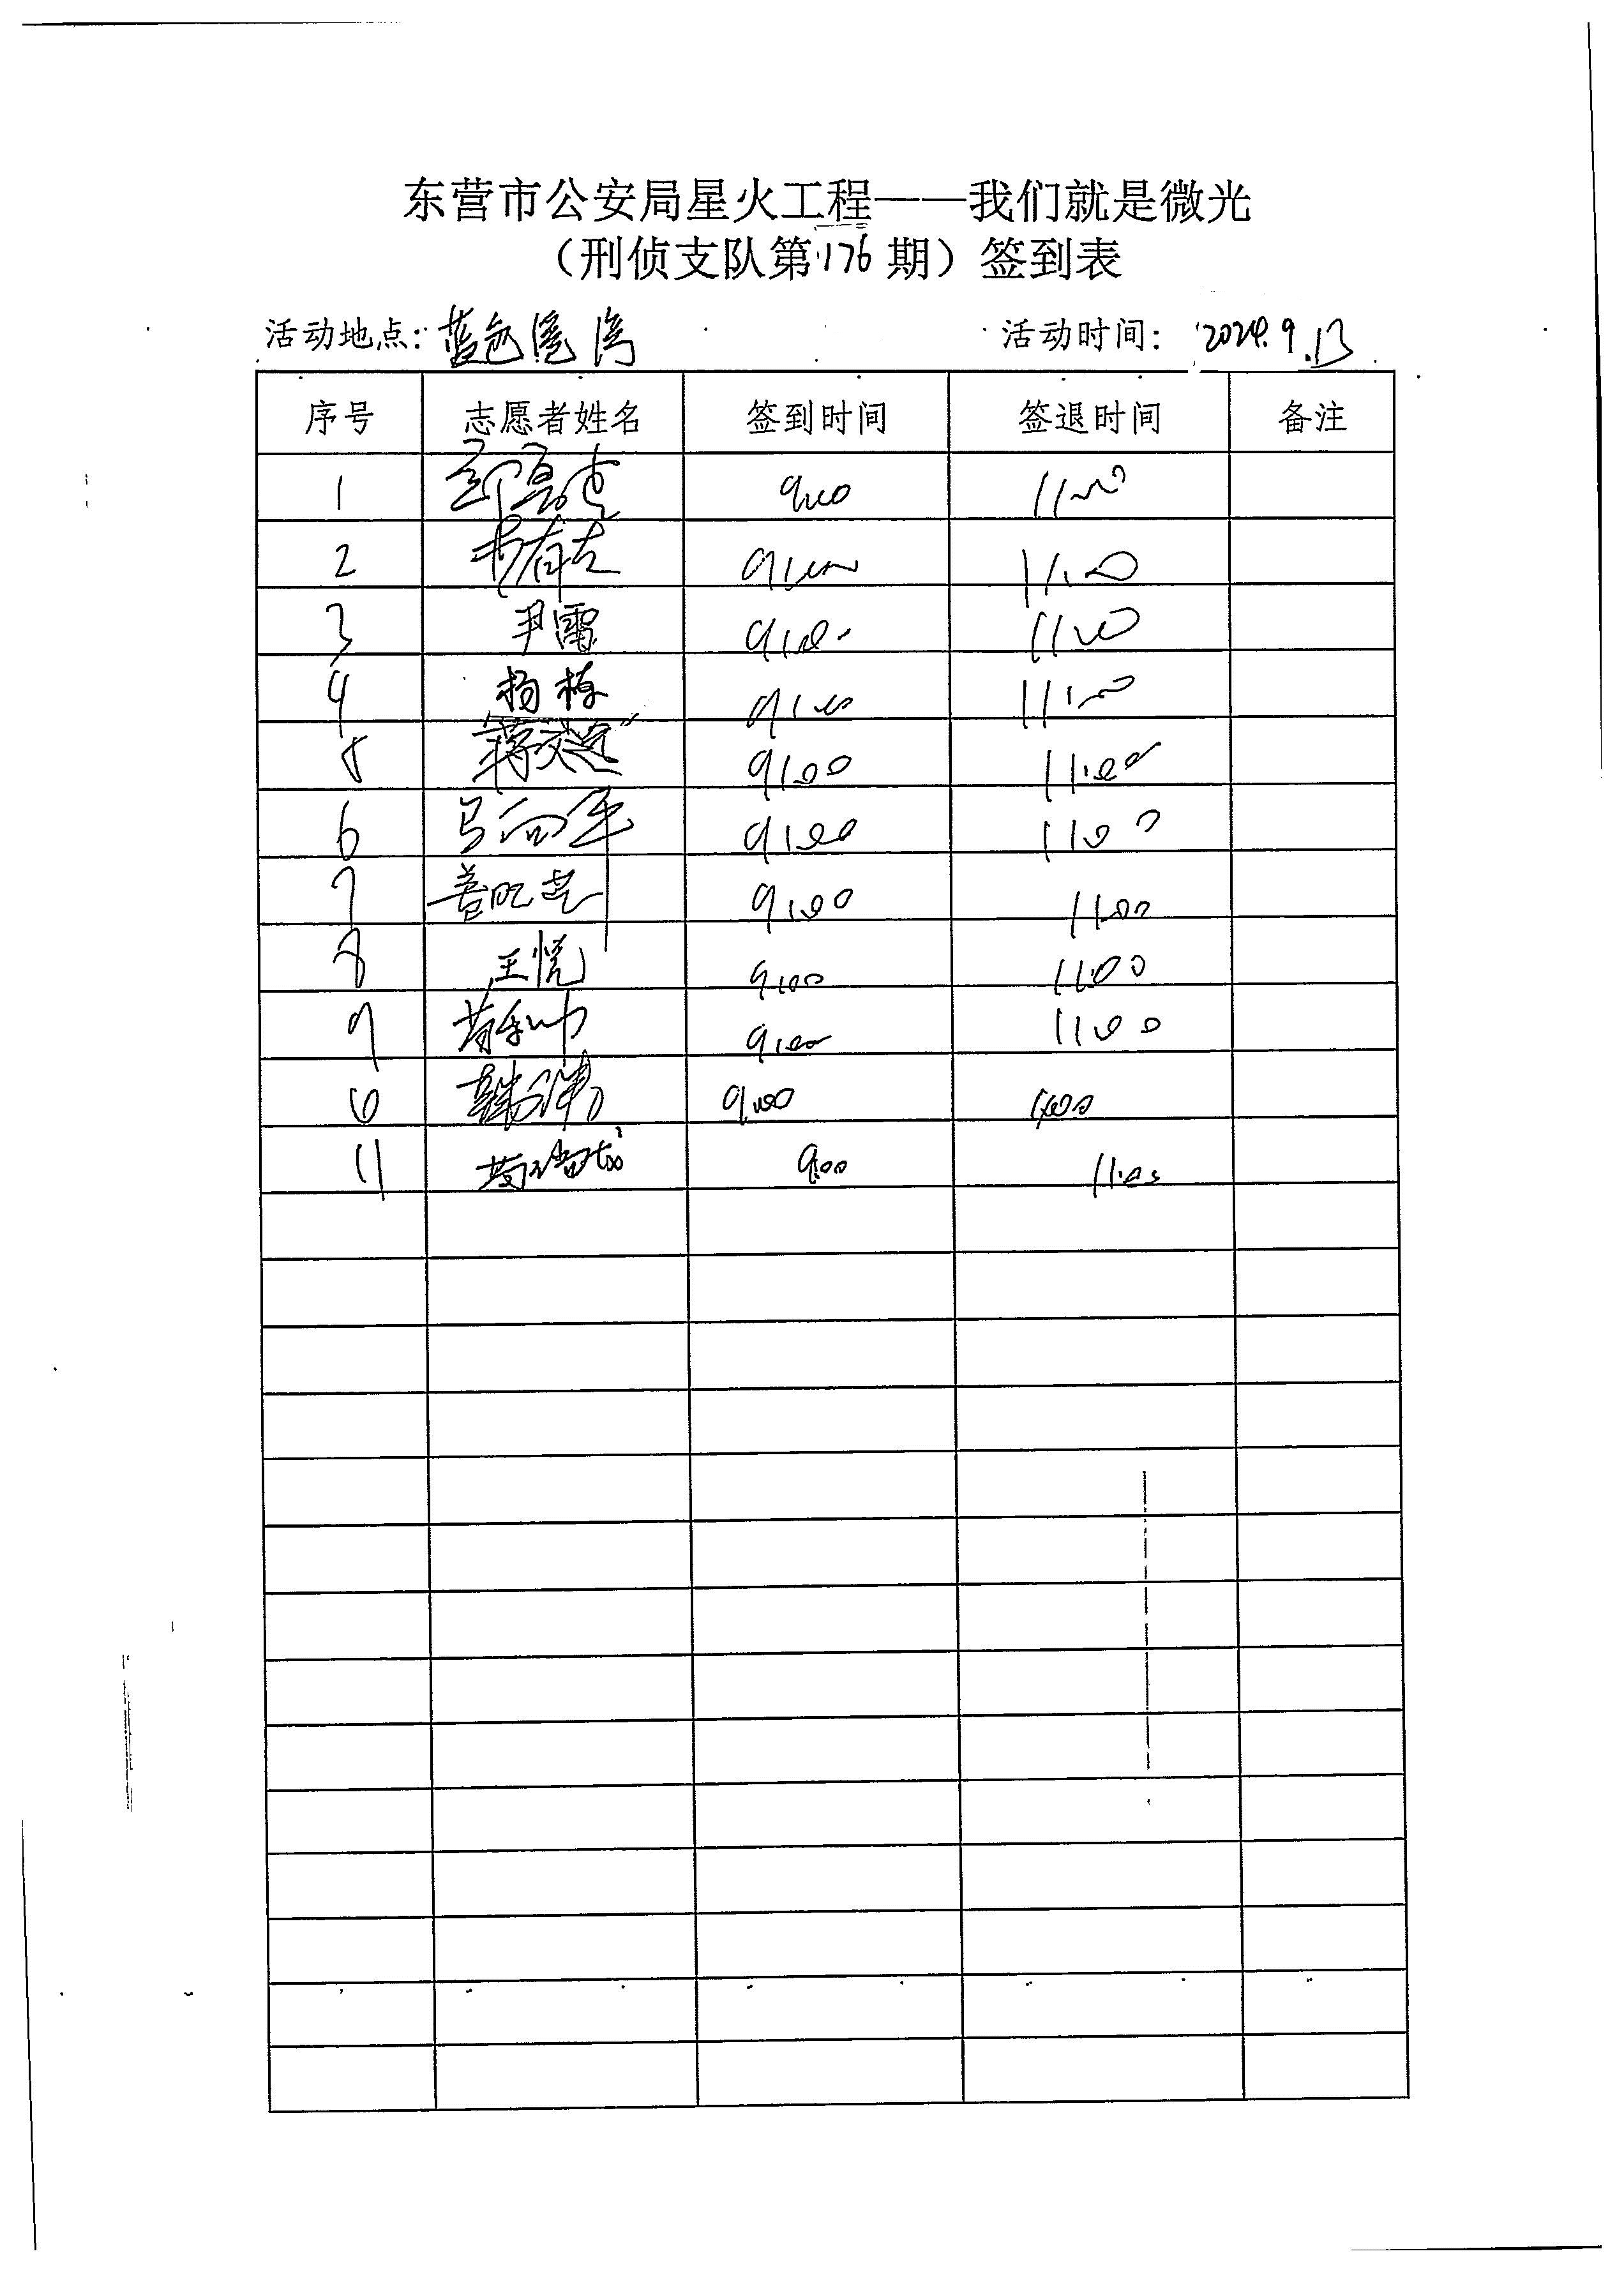 东营市公安局星火工程——我们就是微光
（刑侦支队第176期）签到表
活动地点：蓝色港湾 活动时间：2024.9.13
序号 志愿者姓名 签到时间 签退时间 备注
1 9:00 11:00
2 9:00 11:00
3 尹雷 9:00 11:00
4 杨栋 9:00 11:00
5 9:00 11:00
6 马向军 9:00 11:00
7 9:00 11:00
8 王恺 9:00 11:00
9 9:00 11:00
10 9:00 11:00
11 9:00 11:00